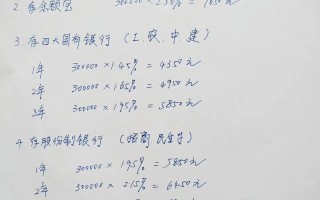 2. 存余额宝 300000 × 2.5% =
3. 存四大国有银行 (工、农、中、建)
1年 300000 × 1.45% = 4350元
2年 300000 × 1.65% = 4950元
3年 300000 × 1.95% = 5850元
4. 存股份制银行 (招商、民生等)
1年 300000 × 1.95% = 5850元
2年 300000 × 2.15% = 6450元